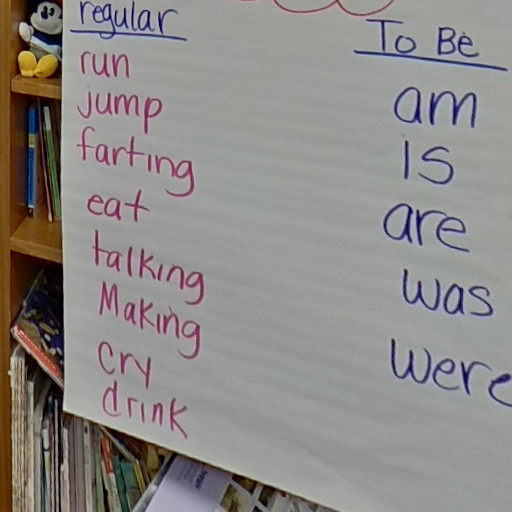 regular
run
jump
farting
eat
talking
Making
cry
drink
To Be
am
is
are
was
were